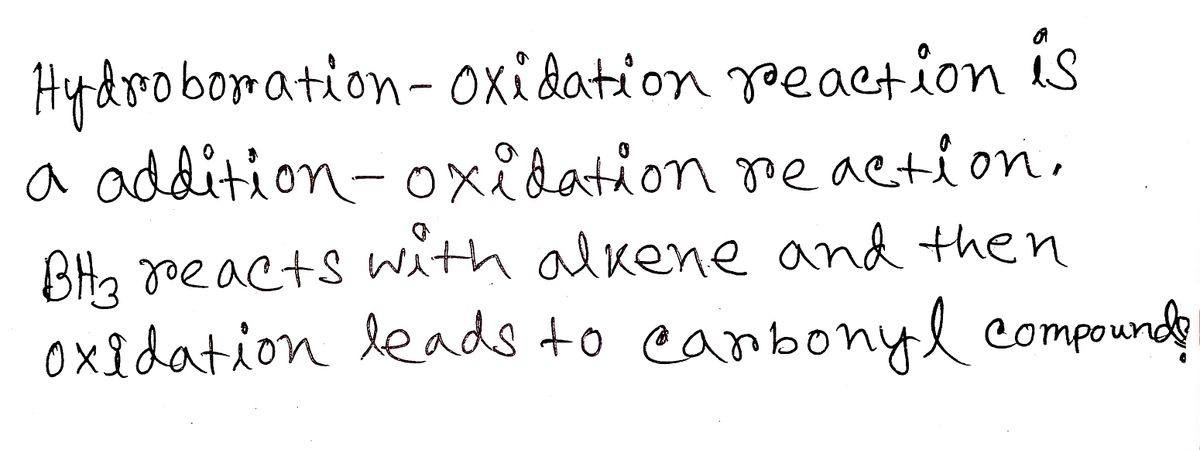 Hydroboration-oxidation reaction is
a addition-oxidation reaction.
BH3 reacts with alkene and then
oxidation leads to carbonyl compounds.